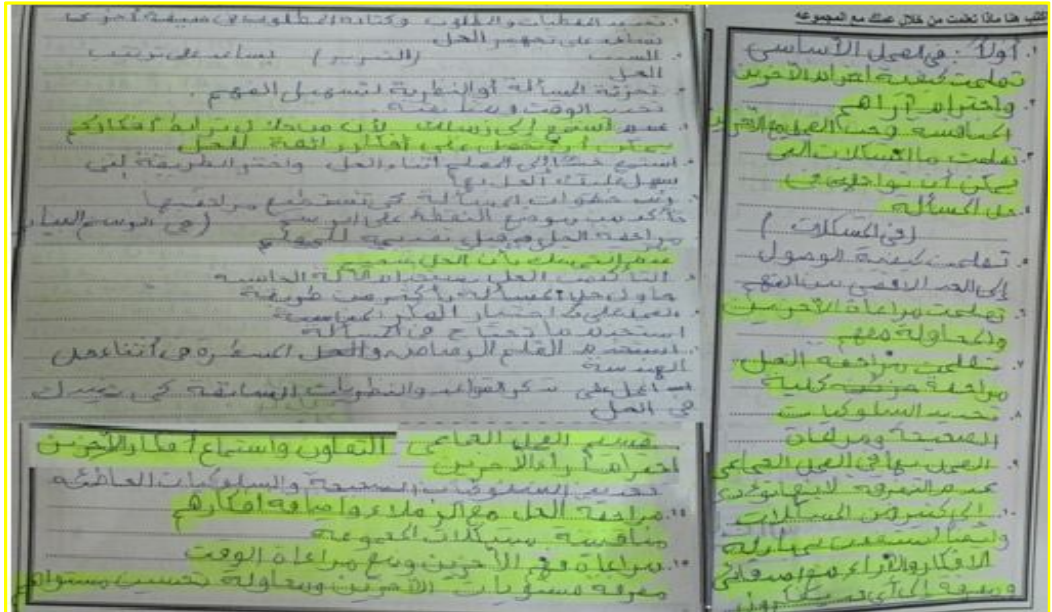 اكتب هنا ماذا تعلمت من خلال عملك مع المجموعه
١. أولاً: في العمل الأساسي
تعلمت كيفية احترام الآخرين
٢. واحترام آرائهم
المنافسة وحب العمل مع الفريق
٣. تعلمت ما المشكلات التي
يمكن أن تواجهني في
٤. حل المسألة
(في المشكلات)
٥. تعلمت كيفية الوصول
إلى الحد الأقصى من الفهم
٦. تعلمت مراعاة الآخرين
والمحاولة معهم
٧. تعلمت مراجعة الحل
مراجعة جزئية كلية
٨. تحديد السلوكيات
الصحيحة ومراعاة
٩. العمل بها في العمل الجماعي
عدم التفرقة لأنها تؤدي
١٠. إلى كثير من المشكلات
وأيضاً استفدت من مبادلة
الأفكار والآراء مع أصدقائي
١. تحديد المعطيات والمطلوب وكتابة المطلوب في صيغة أخرى
تساعد على تجهيز الحل
٢. السبب (التبرير) يساعد على ترتيب
الحل
تجزئة المسألة أو النظرية لتسهيل الفهم.
تحديد الوقت
استمع إلى زميلك لأن من خلال ترابط أفكاركم
يمكن أن تحصل على أفكار رائعة للحل
استمع جيداً إلى المعلم أثناء الحل واختر الطريقة التي
يسهل عليك الحل بها
رتب خطوات المسألة كي تستطيع مراجعتها
تأكد من موضع النقطة على الرسم (في الرسم البياني
مراجعة الحل من قبل تقديمه للمعلم
التأكد من الحل باستخدام الآلة الحاسبة
حاول حل المسألة بأكثر من طريقة
استخدم ما تحتاج في المسألة
استخدم القلم الرصاص والحل المسطرة في أثناء حل
الهندسة
اعمل على تذكر القواعد والنظريات السابقة كي تفيدك
في الحل
تقسيم العمل الجماعي التعاون واستماع أفكار الآخرين
احترام آراء الآخرين
تحديد السلوكيات الصحيحة والسلوكيات الخاطئة
مراجعة الحل مع الزملاء وإضافة أفكارهم
مناقشة مشكلات المجموعة
مراعاة فهم الآخرين ومع مراعاة الوقت
معرفة مستويات الآخرين ومحاولة تحسين مستواهم